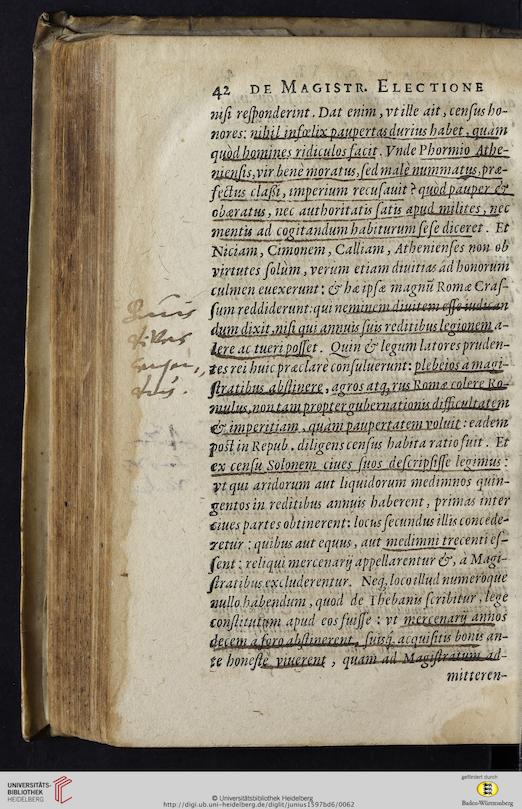 42 DE MAGISTR. ELECTIONE
nisi responderint. Dat enim, vt ille ait, census ho-
nores: nihil infœlix paupertas durius habet, quam
quòd homines ridiculos facit. Vnde Phormio Athe-
niensis, vir bene moratus, sed malè nummatus, præ-
fectus classi, imperium recusauit? quòd pauper &
obæratus, nec authoritatis satis apud milites, nec
mentis ad cogitandum habiturum sese diceret. Et
Niciam, Cimonem, Calliam, Athenienses non ob
virtutes solum, verum etiam diuitias ad honorum
culmen euexerunt: & hæ ipsæ magnũ Romæ Cras-
sum reddiderunt: qui neminem diuitem esse iudican
dum dixit, nisi qui annuis suis reditibus legionem a-
lere ac tueri posset. Quin & legum latores pruden-
tes rei huic præclare consuluerunt: plebeios a magi-
stratibus abstinere, agros atq, rus Romæ colere Ro-
mulus, non tam propter gubernationis difficultatem
& imperitiam, quam paupertatem voluit: eadem
post in Repub. diligens census habita ratio fuit. Et
ex censu Solonem ciues suos descripsisse legimus:
vt qui aridorum aut liquidorum medimnos quin-
gentos in reditibus annuis haberent, primas inter
ciues partes obtinerent: locus secundus illis concede-
retur: quibus aut equus, aut medimni trecenti es-
sent: reliqui mercenarij appellarentur &, à Magi-
stratibus excluderentur. Neq, loco illud numeróque
nullo habendum, quod de Thebanis scribitur, lege
constitutum apud eos fuisse: vt mercenarij annos
decem a foro abstinerent, suisq, acquisitis bonis an-
te honeste viuerent, quam ad Magistratum ad-
mitteren-
UNIVERSITÄTS-
BIBLIOTHEK
HEIDELBERG
© Universitätsbibliothek Heidelberg
http://digi.ub.uni-heidelberg.de/diglit/junius1597bd6/0062
gefördert durch
Baden-Württemberg